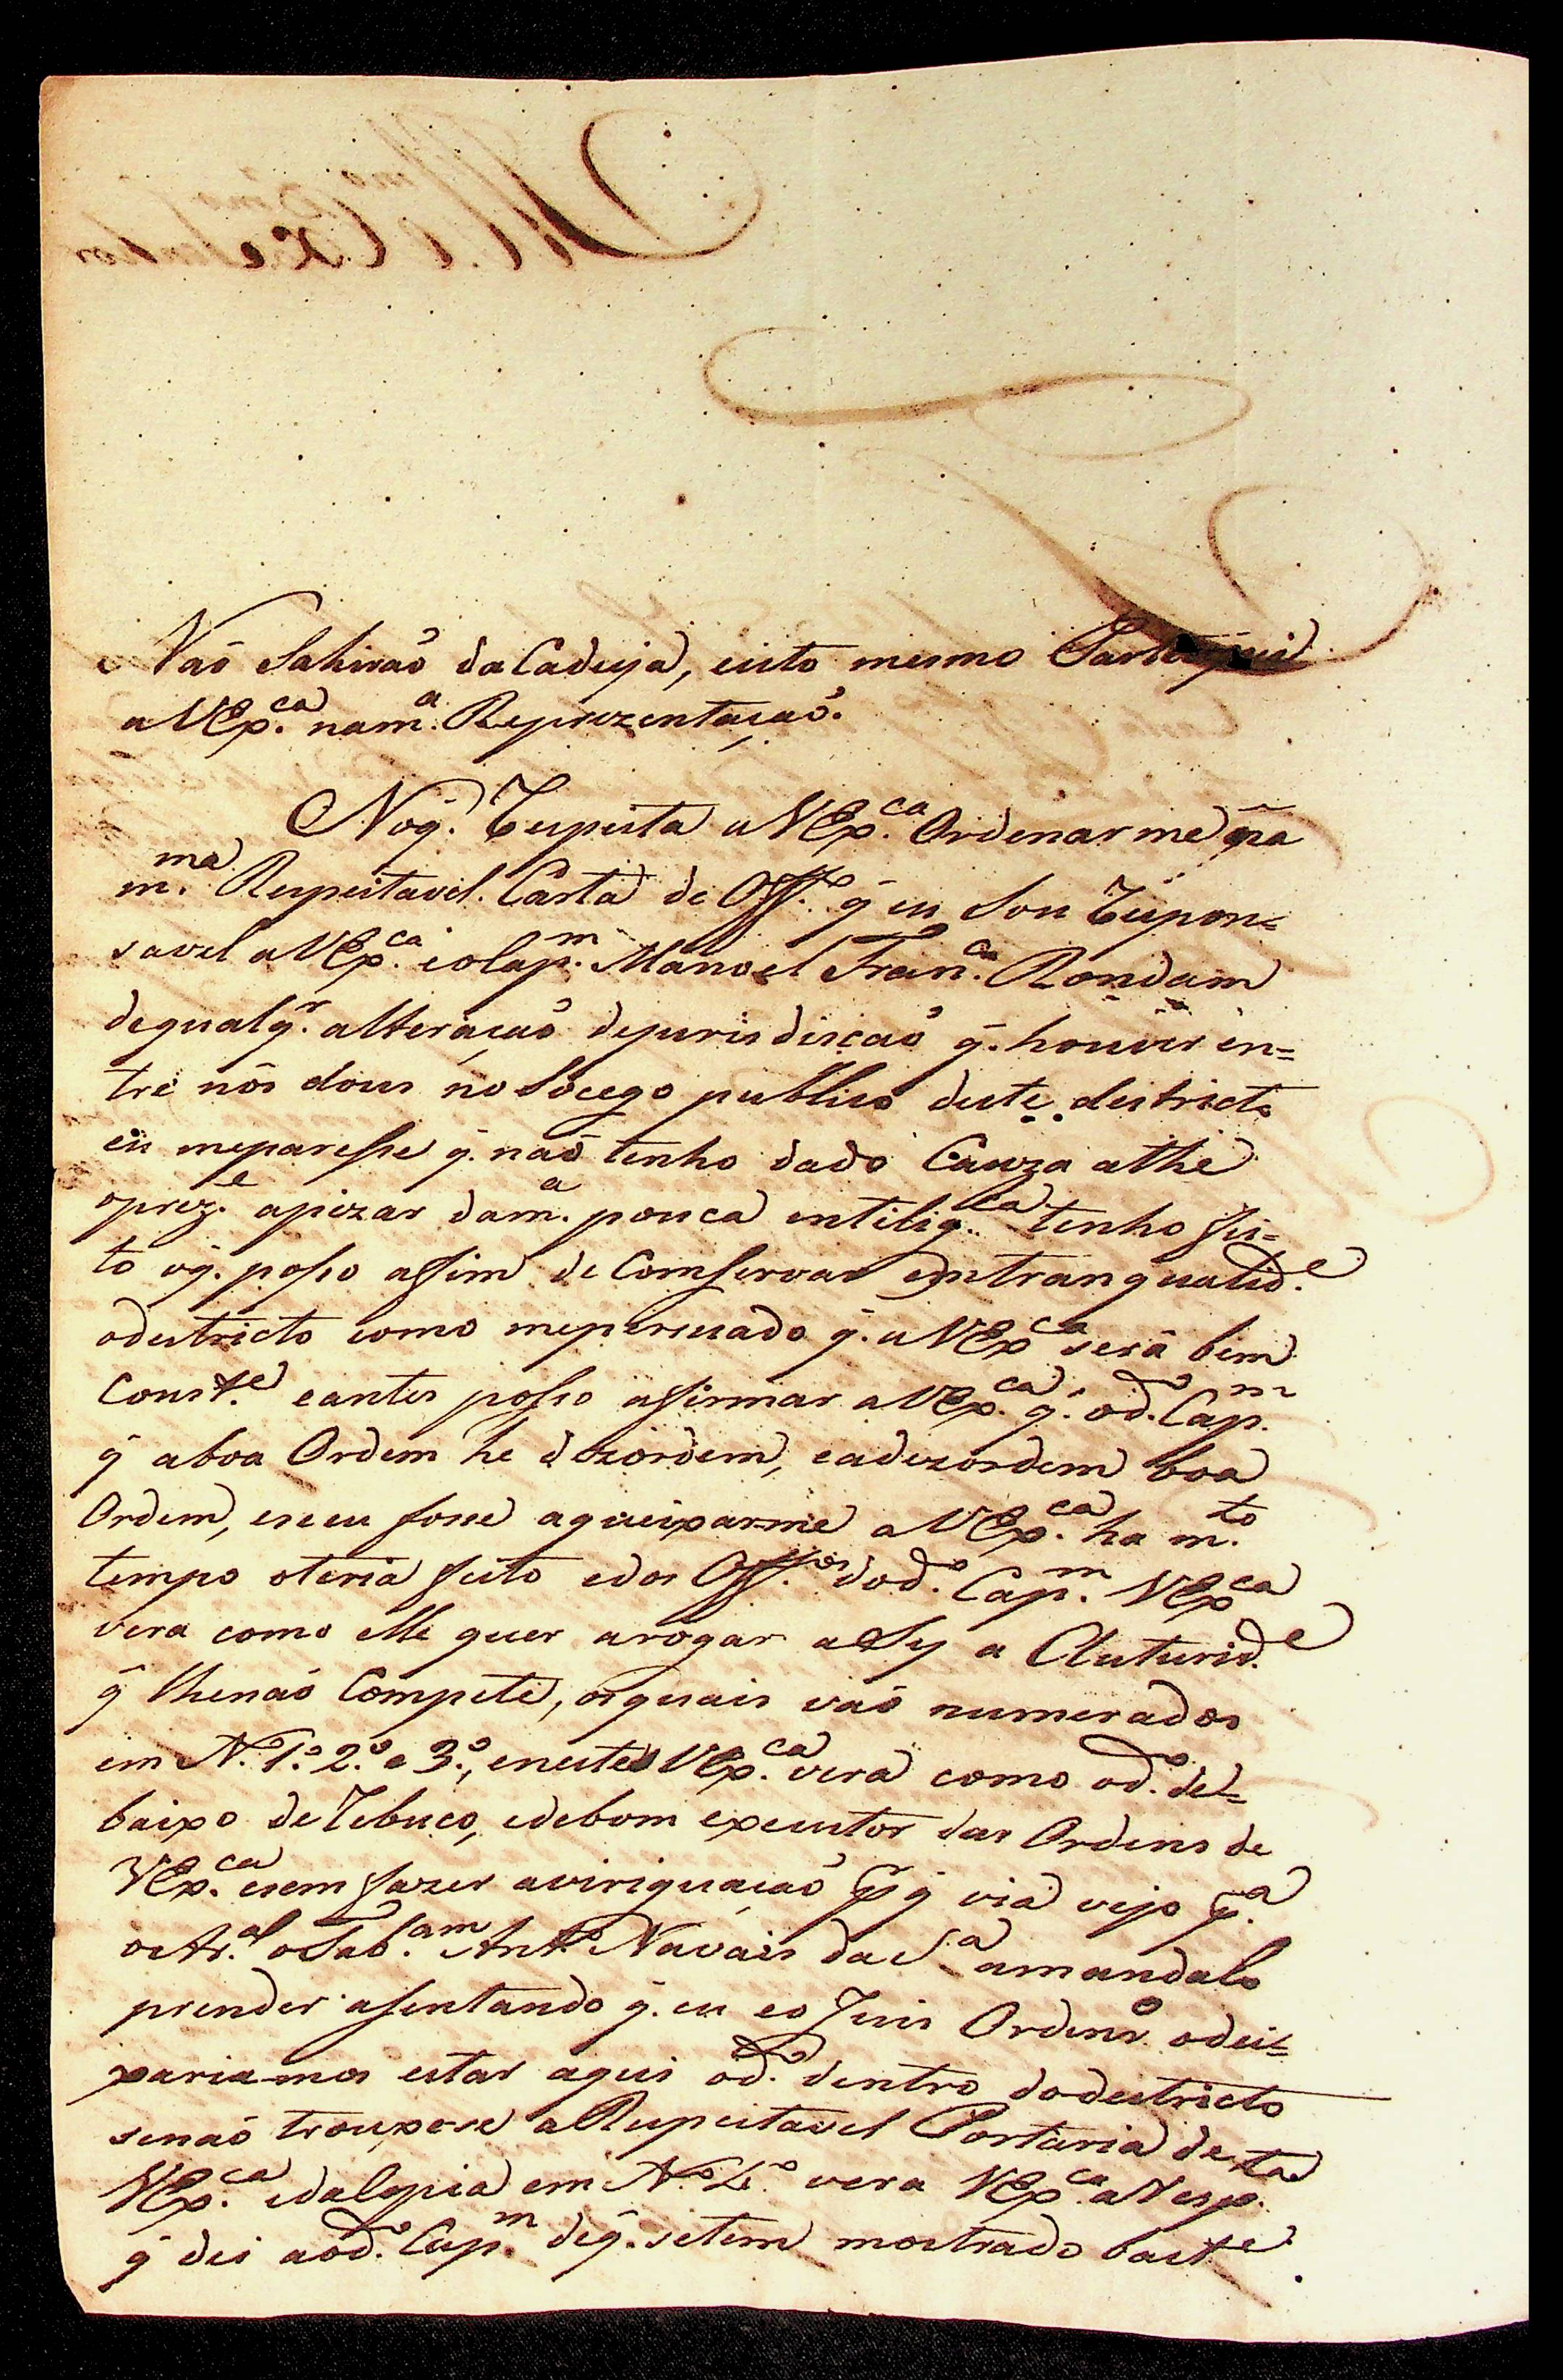 Naõ Sahiraõ da Cadeya, eisto mesmo Participei
a VExᶜᵃ. nam.ᵃ Reprezentaçaõ.
Noq̃. Respeita a VEx.ᶜᵃ Ordenar me na
m.ᵐᵃ Respeitavel Carta de Off.º q̃ eu Sou Respon=
savel a VEx.ᶜᵃ eo Cap.ᵐ Manoel Fran.ᶜᵒ Rondam
dequalq.ʳ alteraçaõ dejurisdiscaõ q̃. houver en=
tre nós dous no Socego publico deste destricto
eu meparesse q̃. naõ tenho dado Cauza athe
oprez.ᵉ apezar dam.ᵃ pouca entilig.ᶜᵃ tenho fei=
to oq̃. posso assim de Comservar em tranqualid.ᵉ
odestricto como mepersuado q̃. a VExᶜᵃ será bem
Const.ᵉ eantes posso afirmar a VEx.ᶜᵃ q̃. od.º Cap.ᵐ
q̃ aboa Ordem he dezordem, eadezordem boa
Ordem, eseeu fosse aqueixarme a VEx.ᶜᵃ ha m.ᵗᵒ
tempo oteria feito edos Off.ᵒˢ dod.º Cap.ᵐ VExᶜᵃ
vera como elle quer arogar aSy a Auturid.ᵉ
q̃ lhenaõ Compete, osquais vaõ numerados
em N.º 1º 2.º e 3.º, enestes VEx.ᶜᵃ verá como od.º de=
baixo de Rebuço, edebom executor das Ordens de
VEx.ᶜᵃ esem fazer aviriguaçaõ q̃ via vejo
o Sab.ᵃᵐ Ant.º Navais da S.ᵃ amandalo
prender asentando q̃. eu eo Juis Ordenr.º odei=
xariamos estar aqui od.º dentro dodestricto
senaõ trouxese aRespeitavel Portaria de
VEx.ᶜᵃ edaCopia em N.º 4.º vera VEx.ᶜᵃ aResp.ᵗᵃ
q̃ dei aod.º Cap.ᵐ deq̃. setem mostrado bast.ᵉ